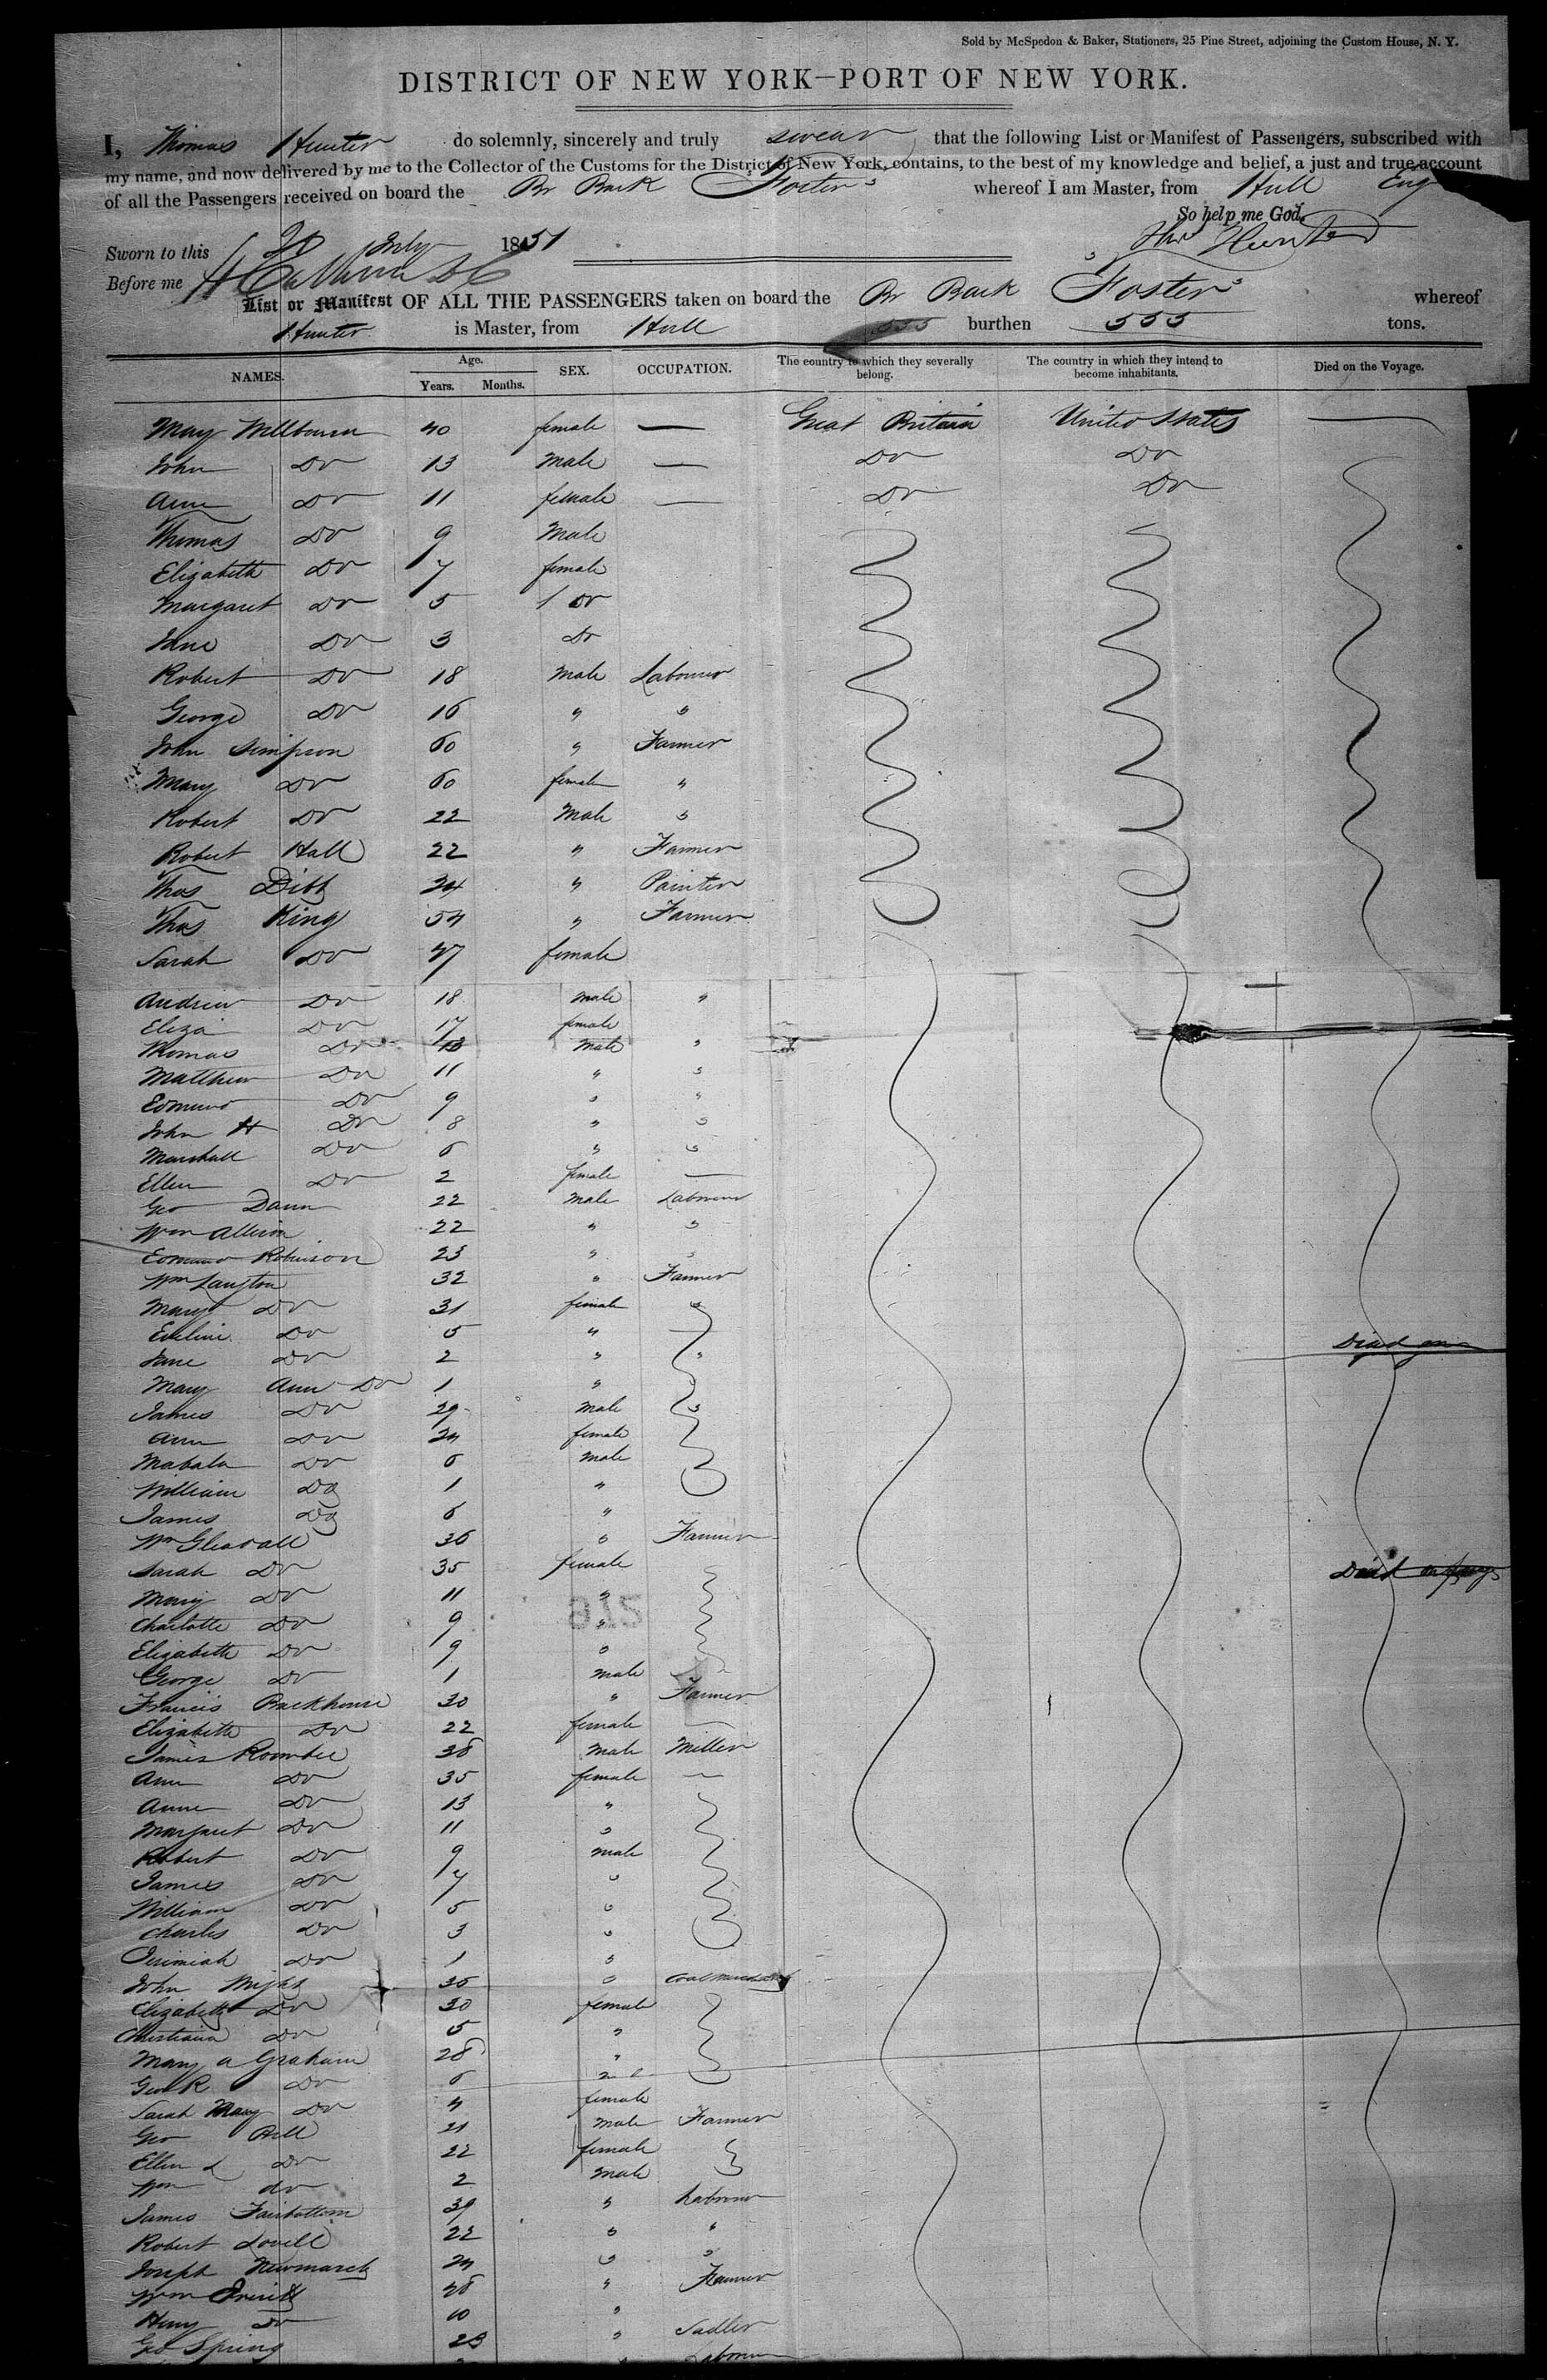 Sold by McSpedon & Baker, Stationers, 25 Pine Street, adjoining the Custom House, N. Y.
DISTRICT OF NEW YORK—PORT OF NEW YORK.
I, Thomas Hunter do solemnly, sincerely and truly swear that the following List or Manifest of Passengers, subscribed with
my name, and now delivered by me to the Collector of the Customs for the District of New York, contains, to the best of my knowledge and belief, a just and true account
of all the Passengers received on board the Br Bark "Foster" whereof I am Master, from Hull Eng
So help me God.
Sworn to this 30 July 1851 Thos Hunter
Before me
List or Manifest OF ALL THE PASSENGERS taken on board the Br Bark "Foster" whereof
Hunter is Master, from Hull 555 burthen 555 tons.
NAMES. Age. Years. Months. SEX. OCCUPATION. The country to which they severally belong. The country in which they intend to become inhabitants. Died on the Voyage.
Mary Millbourn 40 female — Great Britain United States —
John Do 13 Male — Do Do
Ann Do 11 female — Do Do
Thomas Do 9 Male
Elizabeth Do 7 female
Margaret Do 5 Do
Jane Do 3 Do
Robert Do 18 Male Labourer
George Do 16 " "
John Simpson 60 " Farmer
Mary Do 60 female "
Robert Do 22 Male "
Robert Hall 22 " Farmer
Thos Dibb 34 " Painter
Thos King 54 " Farmer
Sarah Do 47 female
Andrew Do 18 male "
Eliza Do 17 female
Thomas Do 13 Male "
Matthew Do 11 " "
Edmund Do 9 " "
John H Do 8 " "
Marshall Do 6 " "
Ellen Do 2 female —
Geo Dann 22 Male Labourer
Wm Allison 22 " "
Edmund Robinson 23 " "
Wm Langton 32 " Farmer
Mary Do 31 female "
Eveline Do 5 "
Jane Do 2 " " Died
Mary Ann Do 1 "
James Do 29 Male "
Ann Do 24 female
Mahala Do 6 male
William Do 1 "
James Do 6 "
Wm Gleadall 36 " Farmer
Sarah Do 35 female Died
Mary Do 11 "
Charlotte Do 9 "
Elizabeth Do 9 "
George Do 1 male
Francis Backhouse 30 " Farmer
Elizabeth Do 22 female —
James Roombee 38 Male Miller
Ann Do 35 female —
Anne Do 13 "
Margaret Do 11 "
Robert Do 9 male
James Do 7 "
William Do 5 "
Charles Do 3 "
Jerimiah Do 1 "
John Wright 35 " Coal Merchant
Elizabeth Do 30 female
Christiana Do 5 "
Mary A Graham 28 "
Geo R Do 6
Sarah Mary Do 4 female
Geo Hill 21 Male Farmer
Ellen Do 22 female
Wm do 2 Male
James Fairbottom 39 " Labourer
Robert Lovell 22 " "
Joseph Newmarch 24 " "
Wm Everitt 48 " Farmer
Henry Do 10 "
Geo Spring 23 " Sadler
Labourer